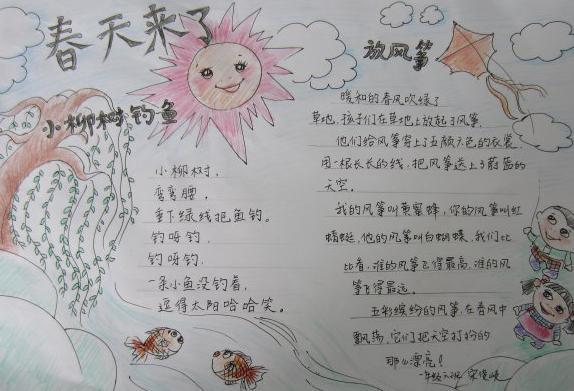 春天来了
小柳树钓鱼
小柳树，
弯弯腰，
垂下绿线把鱼钓。
钓呀钓，
钓呀钓，
一条小鱼没钓着，
逗得太阳哈哈笑。
放风筝
暖和的春风吹绿了
草地，孩子们在草地上放起了风筝。
他们给风筝穿上了五颜六色的衣裳，
用一根长长的线，把风筝送上了蔚蓝的
天空。
我的风筝叫黄蜜蜂，你的风筝叫红
蜻蜓，他的风筝叫白蝴蝶，我们比
比看，谁的风筝飞得最高，谁的风
筝飞得最远。
五彩缤纷的风筝，在春风中
飘荡，它们把天空打扮的
那么漂亮！